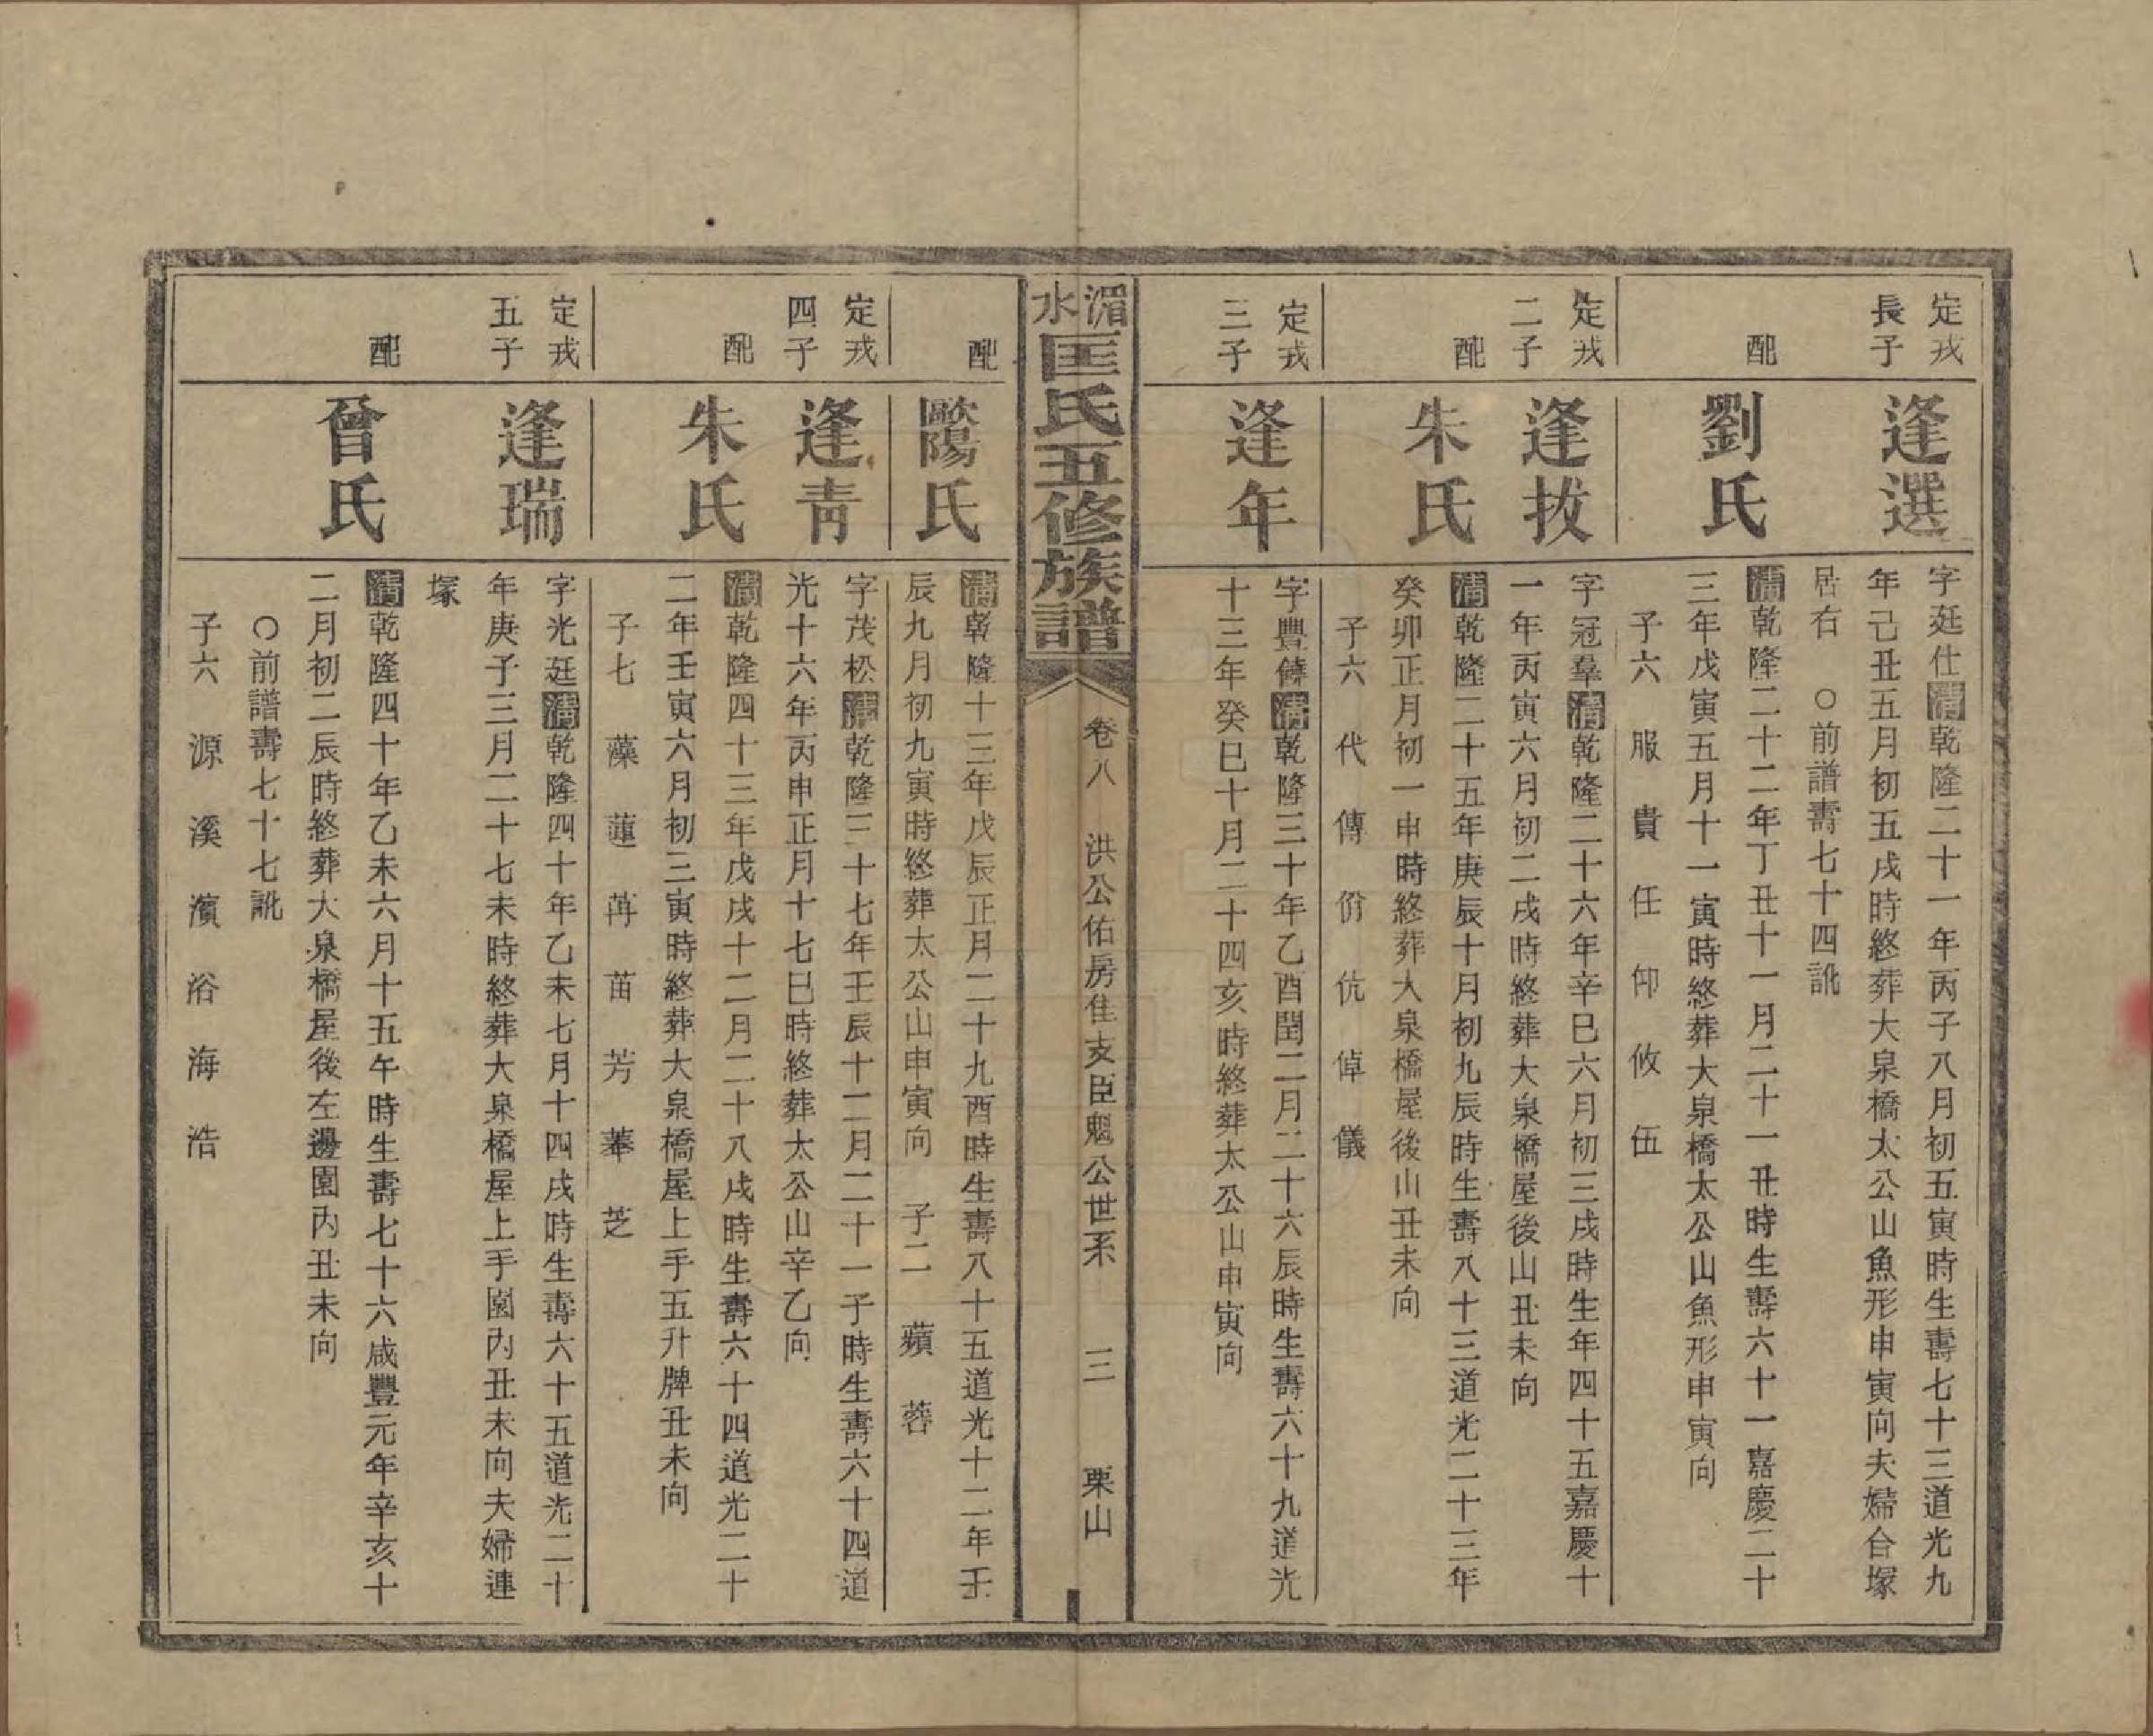 定戎
長子
逢選
字廷仕清乾隆二十一年丙子八月初五寅時生壽七十三道光九
年己丑五月初五戌時終葬大泉橋太公山魚形申寅向夫婦合塚
居右　○前譜壽七十四訛
配
劉氏
清乾隆二十二年丁丑十一月二十一丑時生壽六十一嘉慶二十
三年戊寅五月十一寅時終葬大泉橋太公山魚形申寅向
子六　服　貴　任　仰　攸　伍
定戎
二子
逢拔
字冠羣清乾隆二十六年辛巳六月初三戌時生年四十五嘉慶十
一年丙寅六月初二戌時終葬大泉橋屋後山丑未向
配
朱氏
清乾隆二十五年庚辰十月初九辰時生壽八十三道光二十三年
癸卯正月初一申時終葬大泉橋屋後山丑未向
子六　代　傳　份　伉　倬　儀
定戎
三子
逢年
字豐傳清乾隆三十年乙酉閏二月二十六辰時生壽六十九道光
十三年癸巳十月二十四亥時終葬太公山申寅向
湄水匡氏五修族譜
卷八　洪公佑房隹支臣魁公世系　三　栗山
配
歐陽氏
清乾隆十三年戊辰正月二十九酉時生壽八十五道光十二年壬
辰九月初九寅時終葬太公山申寅向　子二　蘋　蓉
定戎
四子
逢青
字茂松清乾隆三十七年壬辰十二月二十一子時生壽六十四道
光十六年丙申正月十七巳時終葬太公山辛乙向
配
朱氏
清乾隆四十三年戊戌十二月二十八戌時生壽六十四道光二十
二年壬寅六月初三寅時終葬大泉橋屋上手五升牌丑未向
子七　藻　蓮　苒　苗　芳　華　芝
定戎
五子
逢瑞
字光廷清乾隆四十年乙未七月十四戌時生壽六十五道光二十
年庚子三月二十七未時終葬大泉橋屋上手園內丑未向夫婦連
塚
配
曾氏
清乾隆四十年乙未六月十五午時生壽七十六咸豐元年辛亥十
二月初二辰時終葬大泉橋屋後左邊園內丑未向
○前譜壽七十七訛
子六　源　溪　濱　浴　海　浩